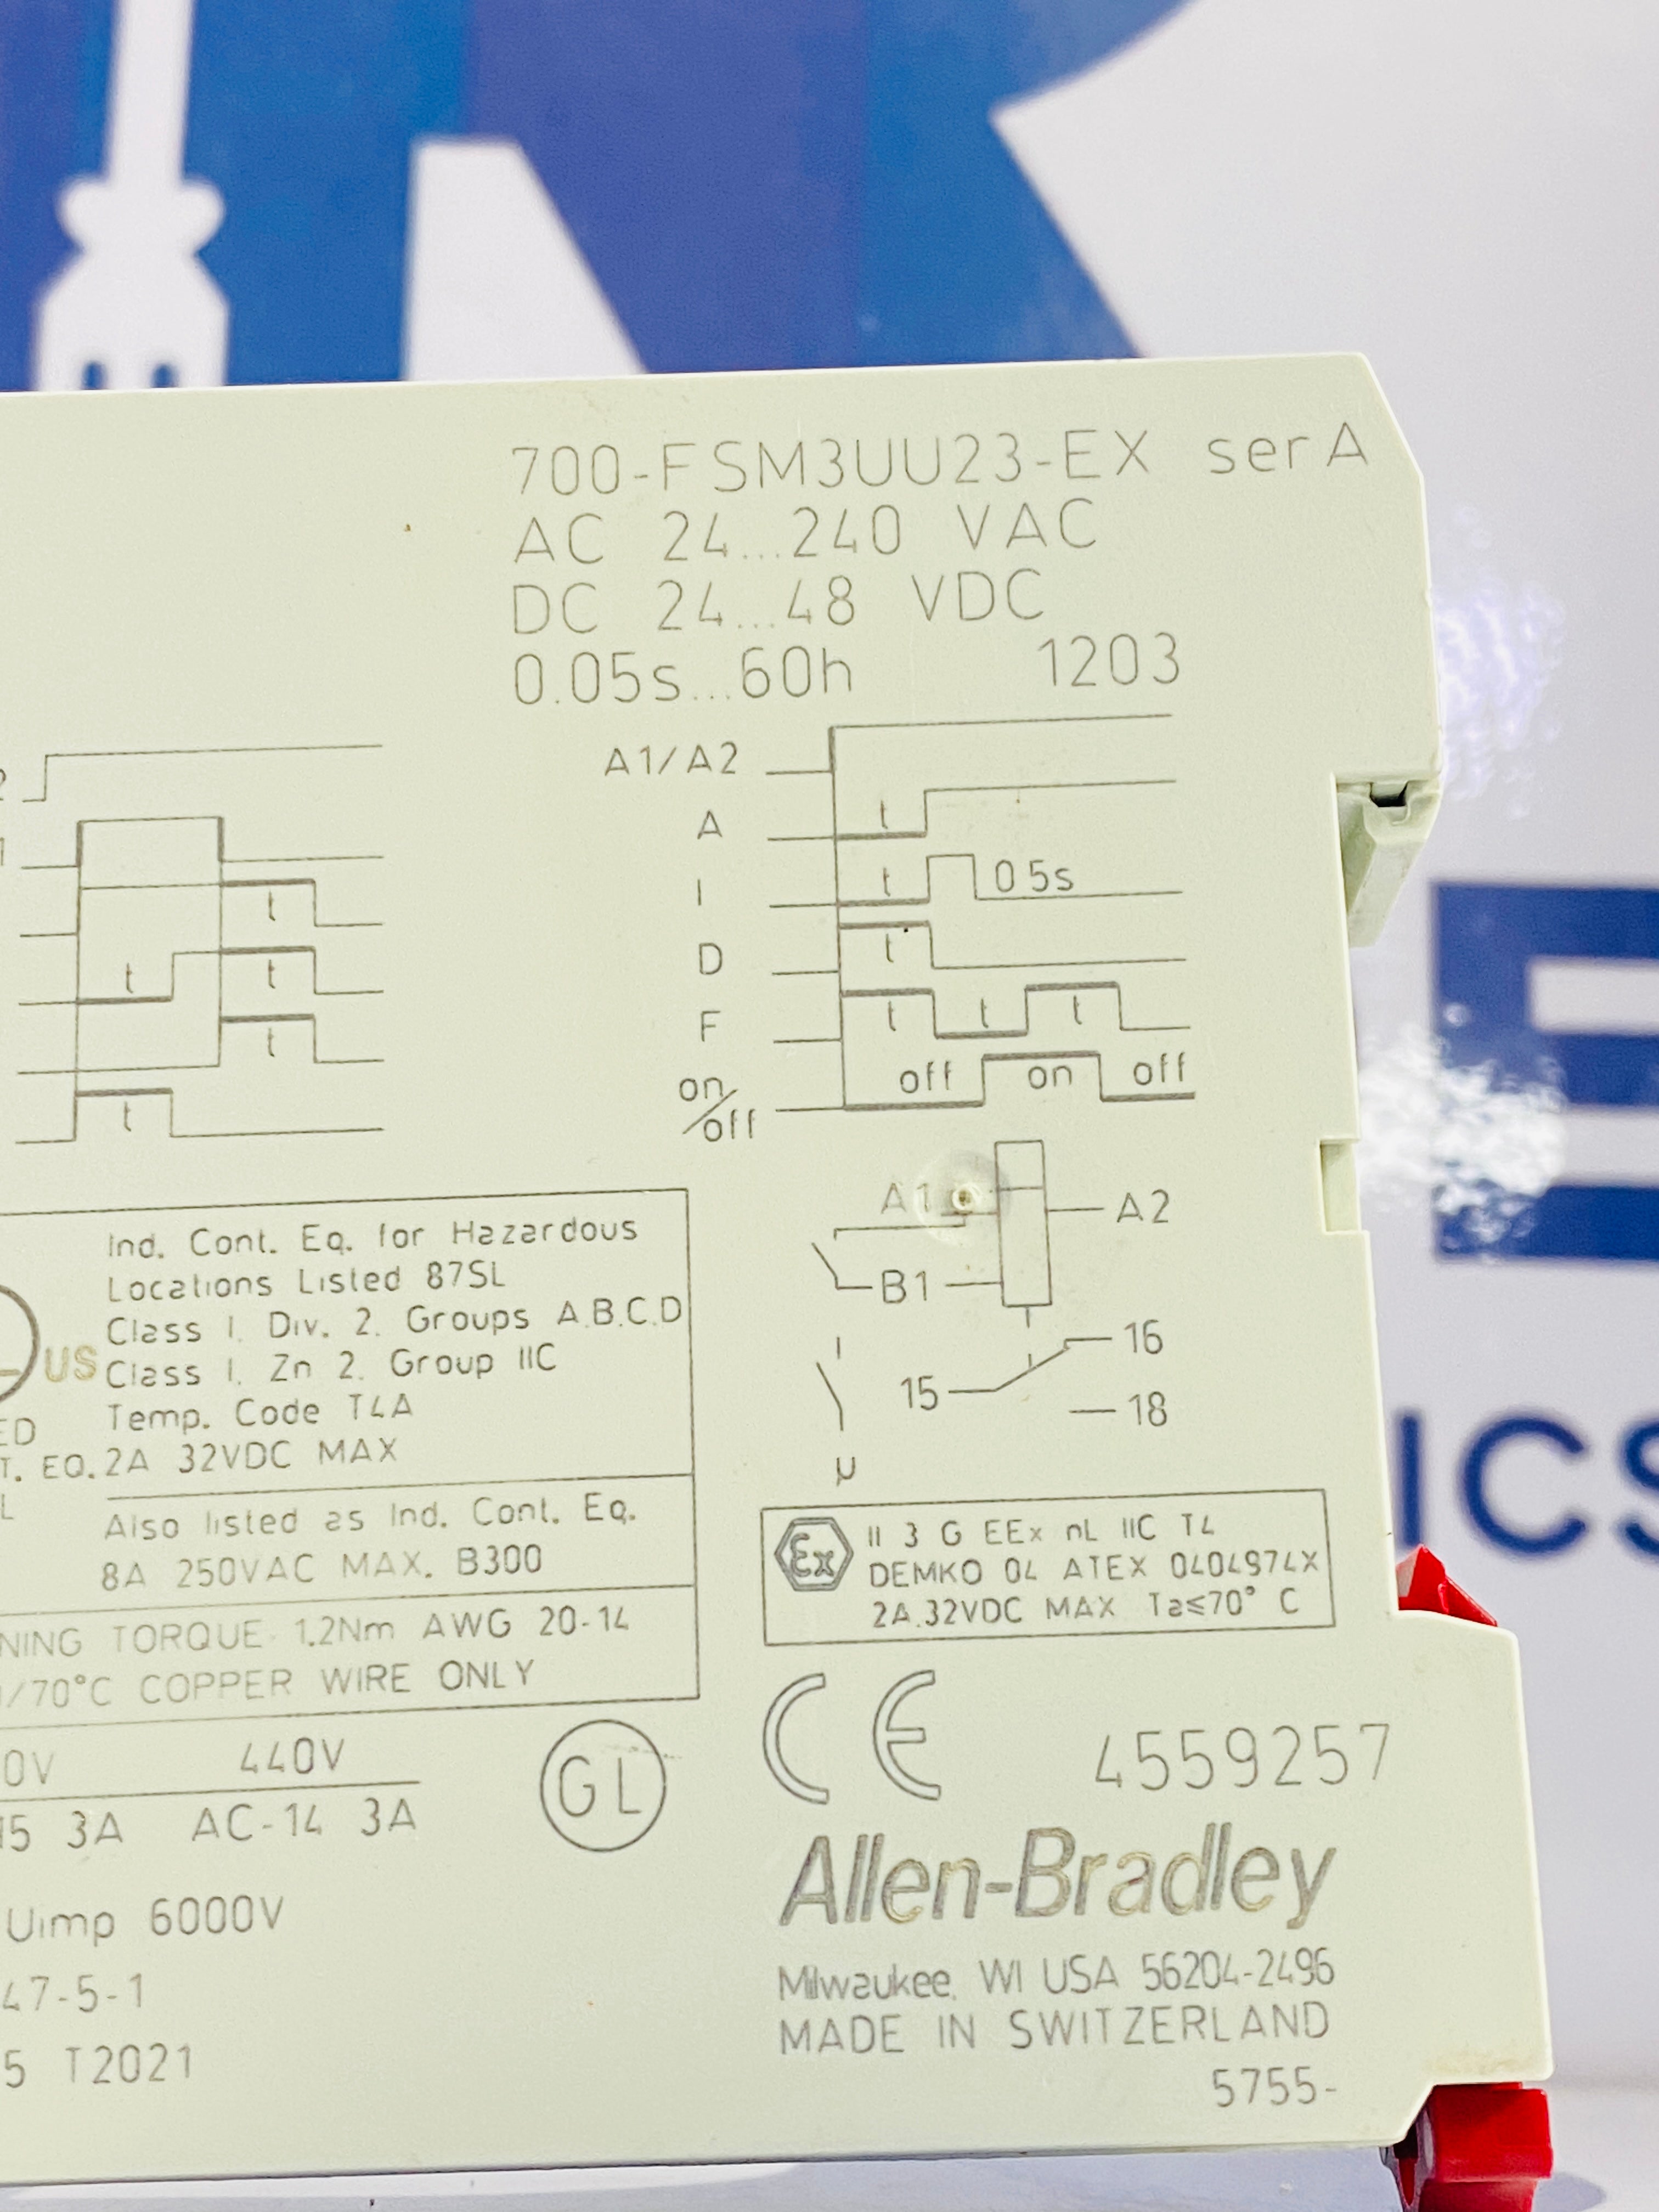 700-FSM3UU23-EX serA
AC 24...240 VAC
DC 24...48 VDC
0.05s...60h 1203
2
1
t
t
t
t
t
A1/A2
A t
I t 0.5s
D t
F t t t
on/off off on off
A1 A2
B1
16
15
18
µ
Ind. Cont. Eq. for Hazardous
Locations Listed 87SL
Class I. Div. 2. Groups A.B.C.D
US Class I. Zn 2. Group IIC
ED Temp. Code T4A
T. EQ. 2A 32VDC MAX
L
Also listed as Ind. Cont. Eq.
8A 250VAC MAX. B300
NING TORQUE 1.2Nm AWG 20-14
/70°C COPPER WIRE ONLY
Ex II 3 G EEx nL IIC T4
DEMKO 04 ATEX 0404974X
2A.32VDC MAX Ta≤70° C
0V 440V
15 3A AC-14 3A
GL
CE 4559257
Allen-Bradley
Uimp 6000V
Milwaukee, WI USA 56204-2496
47-5-1
MADE IN SWITZERLAND
5 T2021
5755-
ICS